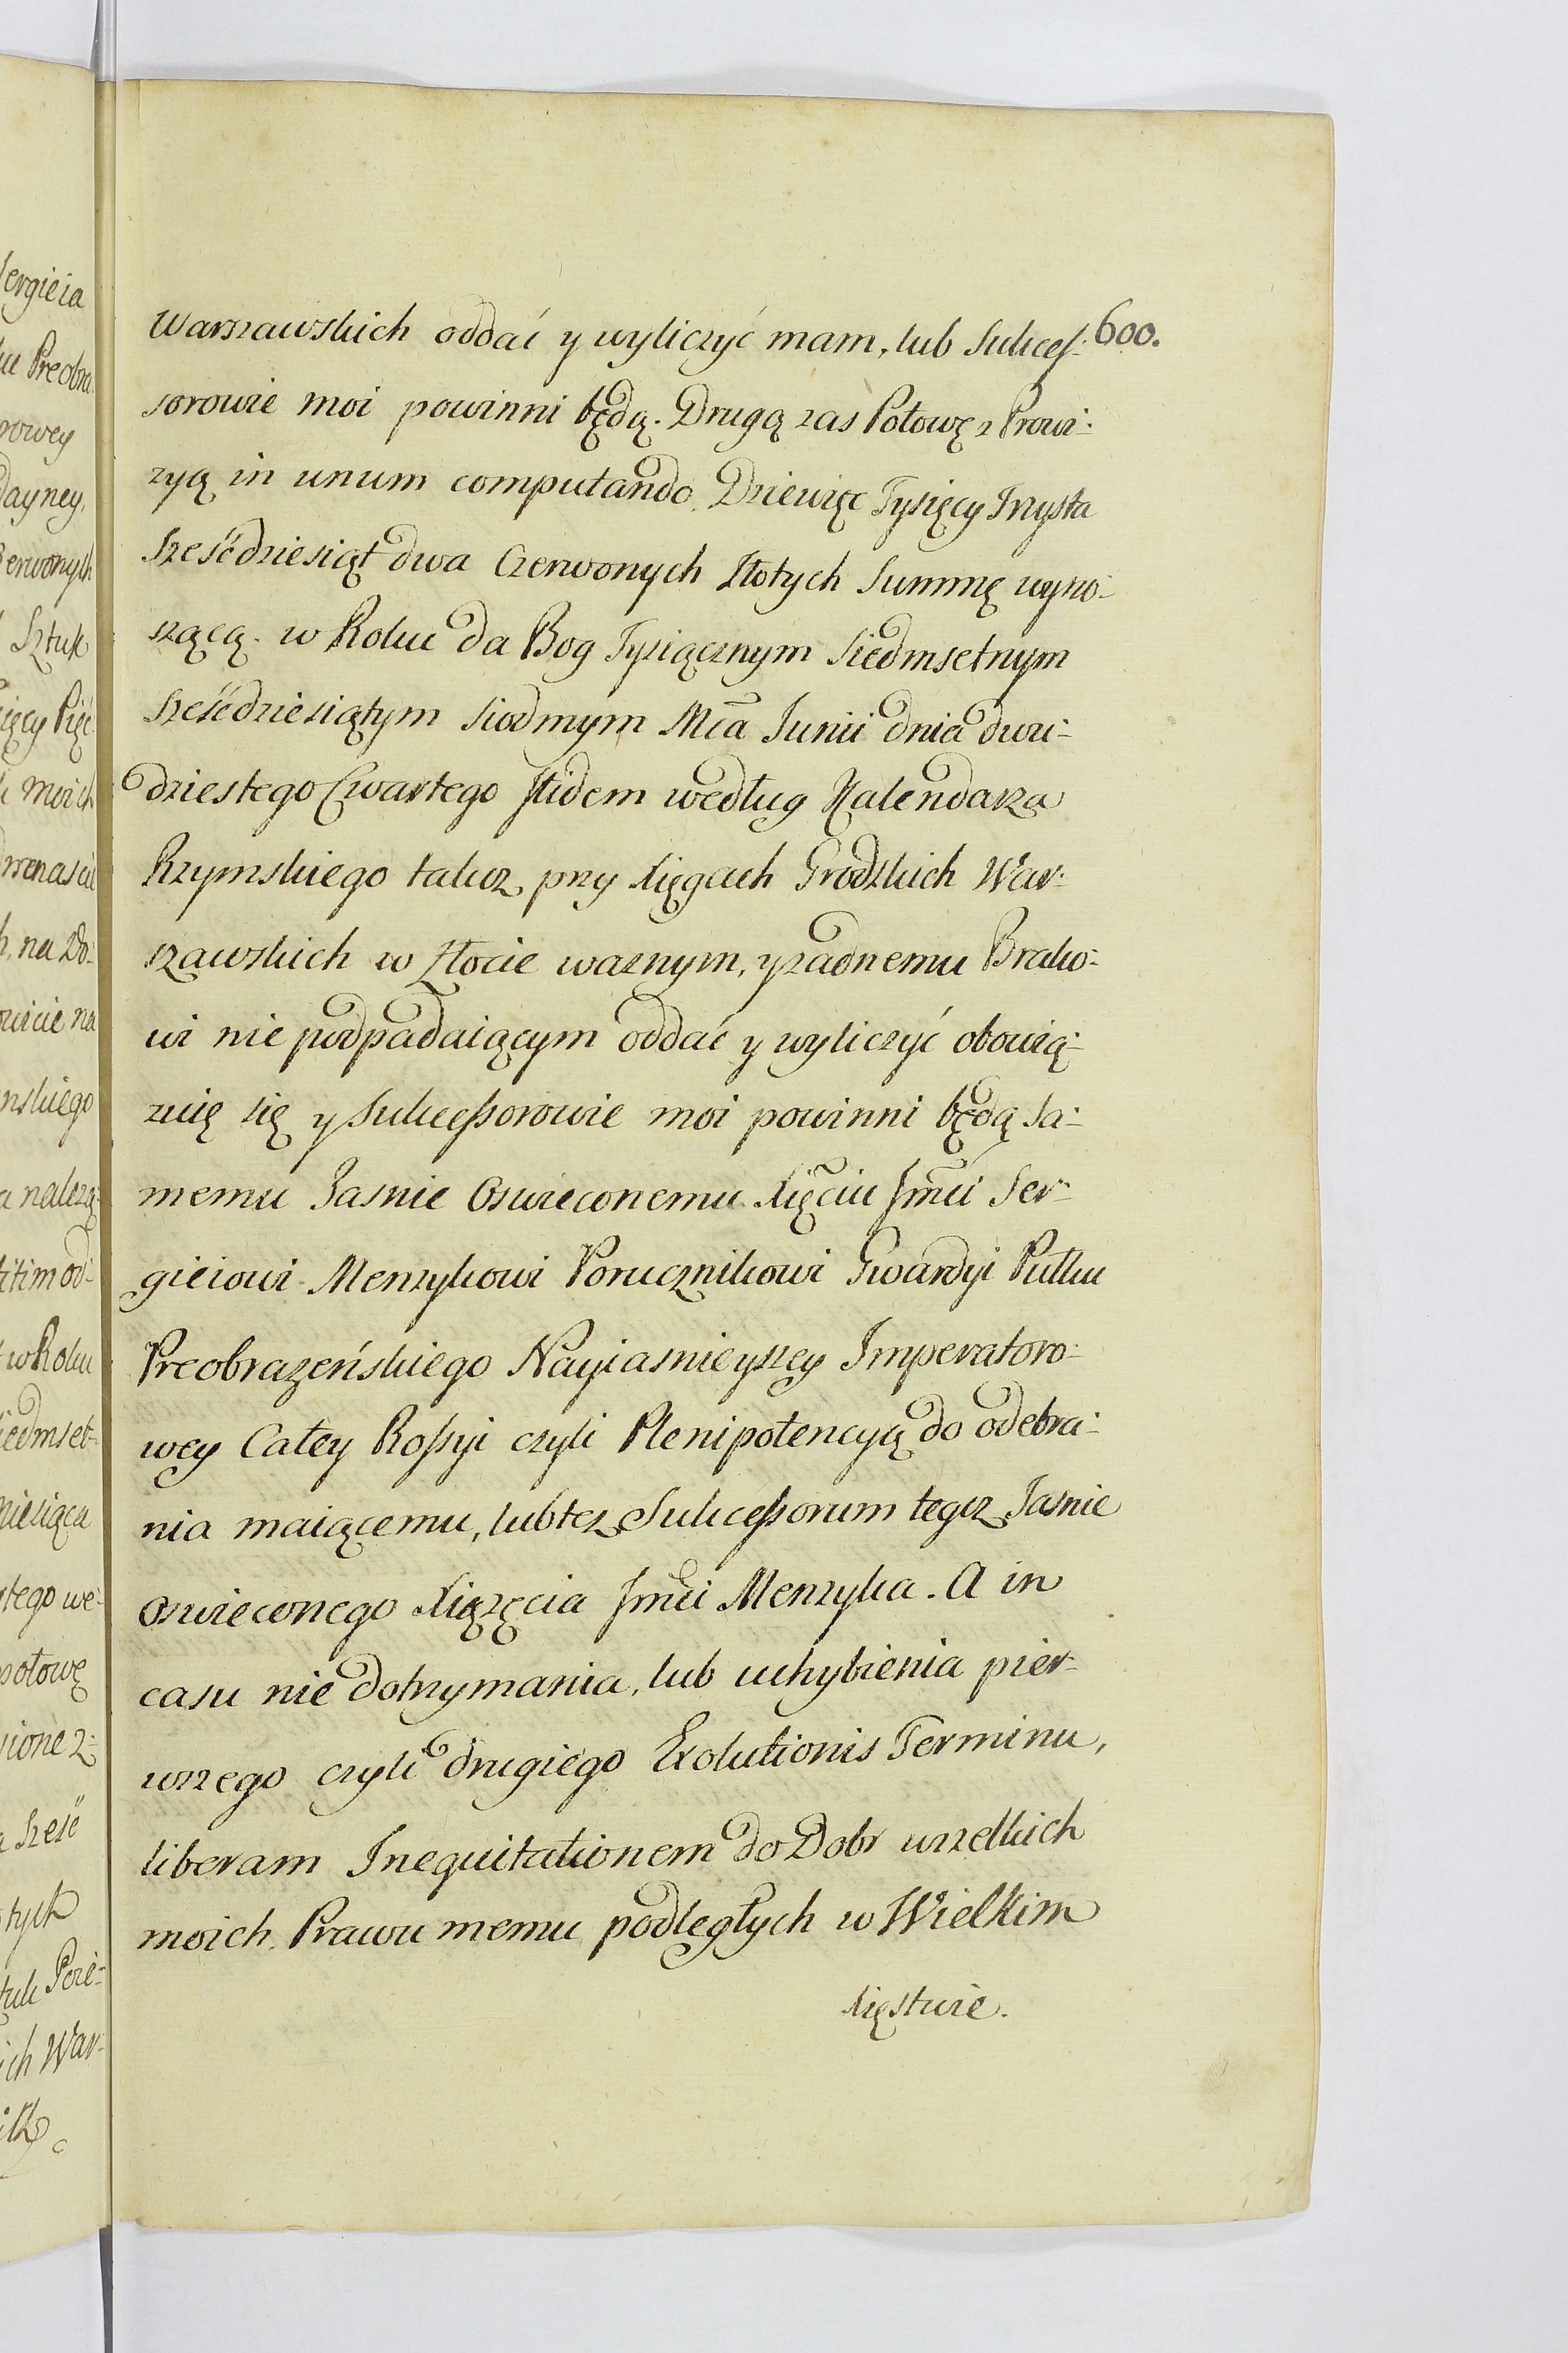 600.
Warszawskich oddać y wyliczyć mam, lub Sukces-
sorowie moi powinni będą. Drugą zas Połowę z Prowi-
zyą in unum computando. Dziewięc Tysięcy Trzysta
Sześćdziesiąt dwa Czerwonych Złotych Summę wyno-
szącą. w Roku da Bog Tysiącznym Siedmsetnym
Sześćdziesiątym Siodmym Mca Junii dnia dwu-
dziestego Czwartego Itidem według Kalendarza
Rzymskiego takoz przy Xięgach Grodzkich War-
szawskich w Złocie waznym, y zadnemu Brako-
wi nie podpadaiącym oddać y wyliczyć obowią-
zuię się y Sukcessorowie moi powinni będą Sa-
memu Jasnie Oswieconemu Xięciu Jmci Ser-
gieiowi Menzykowi Porucznikowi Gwardyi Pułku
Preobrazeńskiego Nayiasnieyszey Imperatoro-
wey Całey Rossyi czyli Plenipotencyą do odebra-
nia maiącemu, lub tez Sukcessorum tegoz Jasnie
Oswieconego Xiązęcia Jmci Menzyka. A in
casu nie dotrzymania, lub uchybienia pier-
wszego czyli drugiego Exolutionis Terminu,
liberam Inequitationem do Dobr wszelkich
moich Prawu memu podległych w Wielkim
Xięstwie.
ergieia
ku Preobra
rowey
dayney,
zerwonych
Sztuk
ięcy Pięć
moich
h, na Do-
owicie na
mskiego
a nalezą-
titim od-
w Roku
iedmset-
Miesiąca
rtego we-
połowę
a Sześć
tych
ich War-